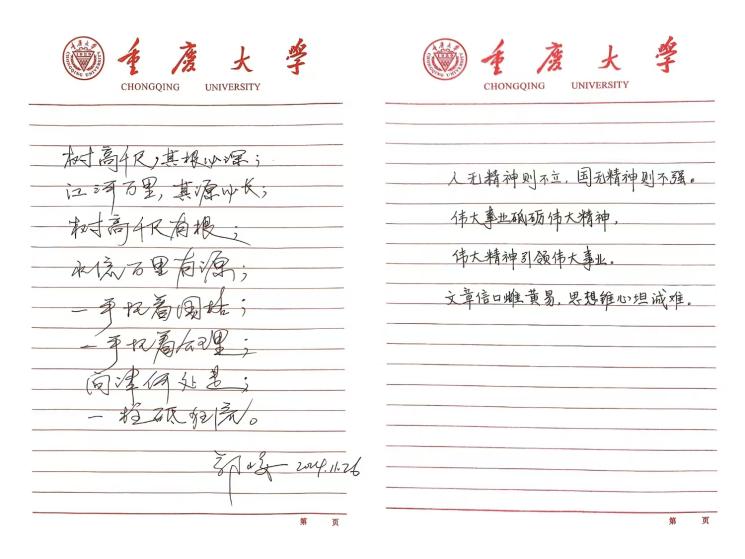 重庆大学
CHONGQING UNIVERSITY
树高千尺，其根必深；
江河万里，其源必长；
树高千尺有根；
万里有源；
一手
一手
问津何处是；
一柱砥狂流。
2024.11.26
第 页
重庆大学
CHONGQING UNIVERSITY
人无精神则不立，国无精神则不强。
伟大事业砥砺伟大精神，
伟大精神引领伟大事业。
文章信口雌黄易，思想维心坦诚难。
第 页